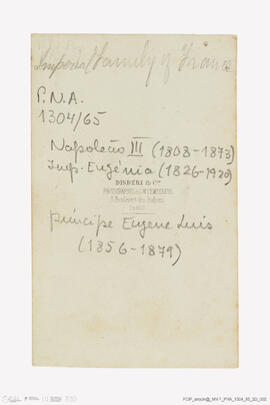 Imperial Family of France
P.N.A.
1304/65
Napoleão III (1808-1873)
Imp. Eugénia (1826-1920)
DISDERI & Cie
PHOTOGRAPHES DE S.M. L'EMPEREUR
8 Boulevart des Italiens
PARIS
príncipe Eugene Luis
(1856-1879)